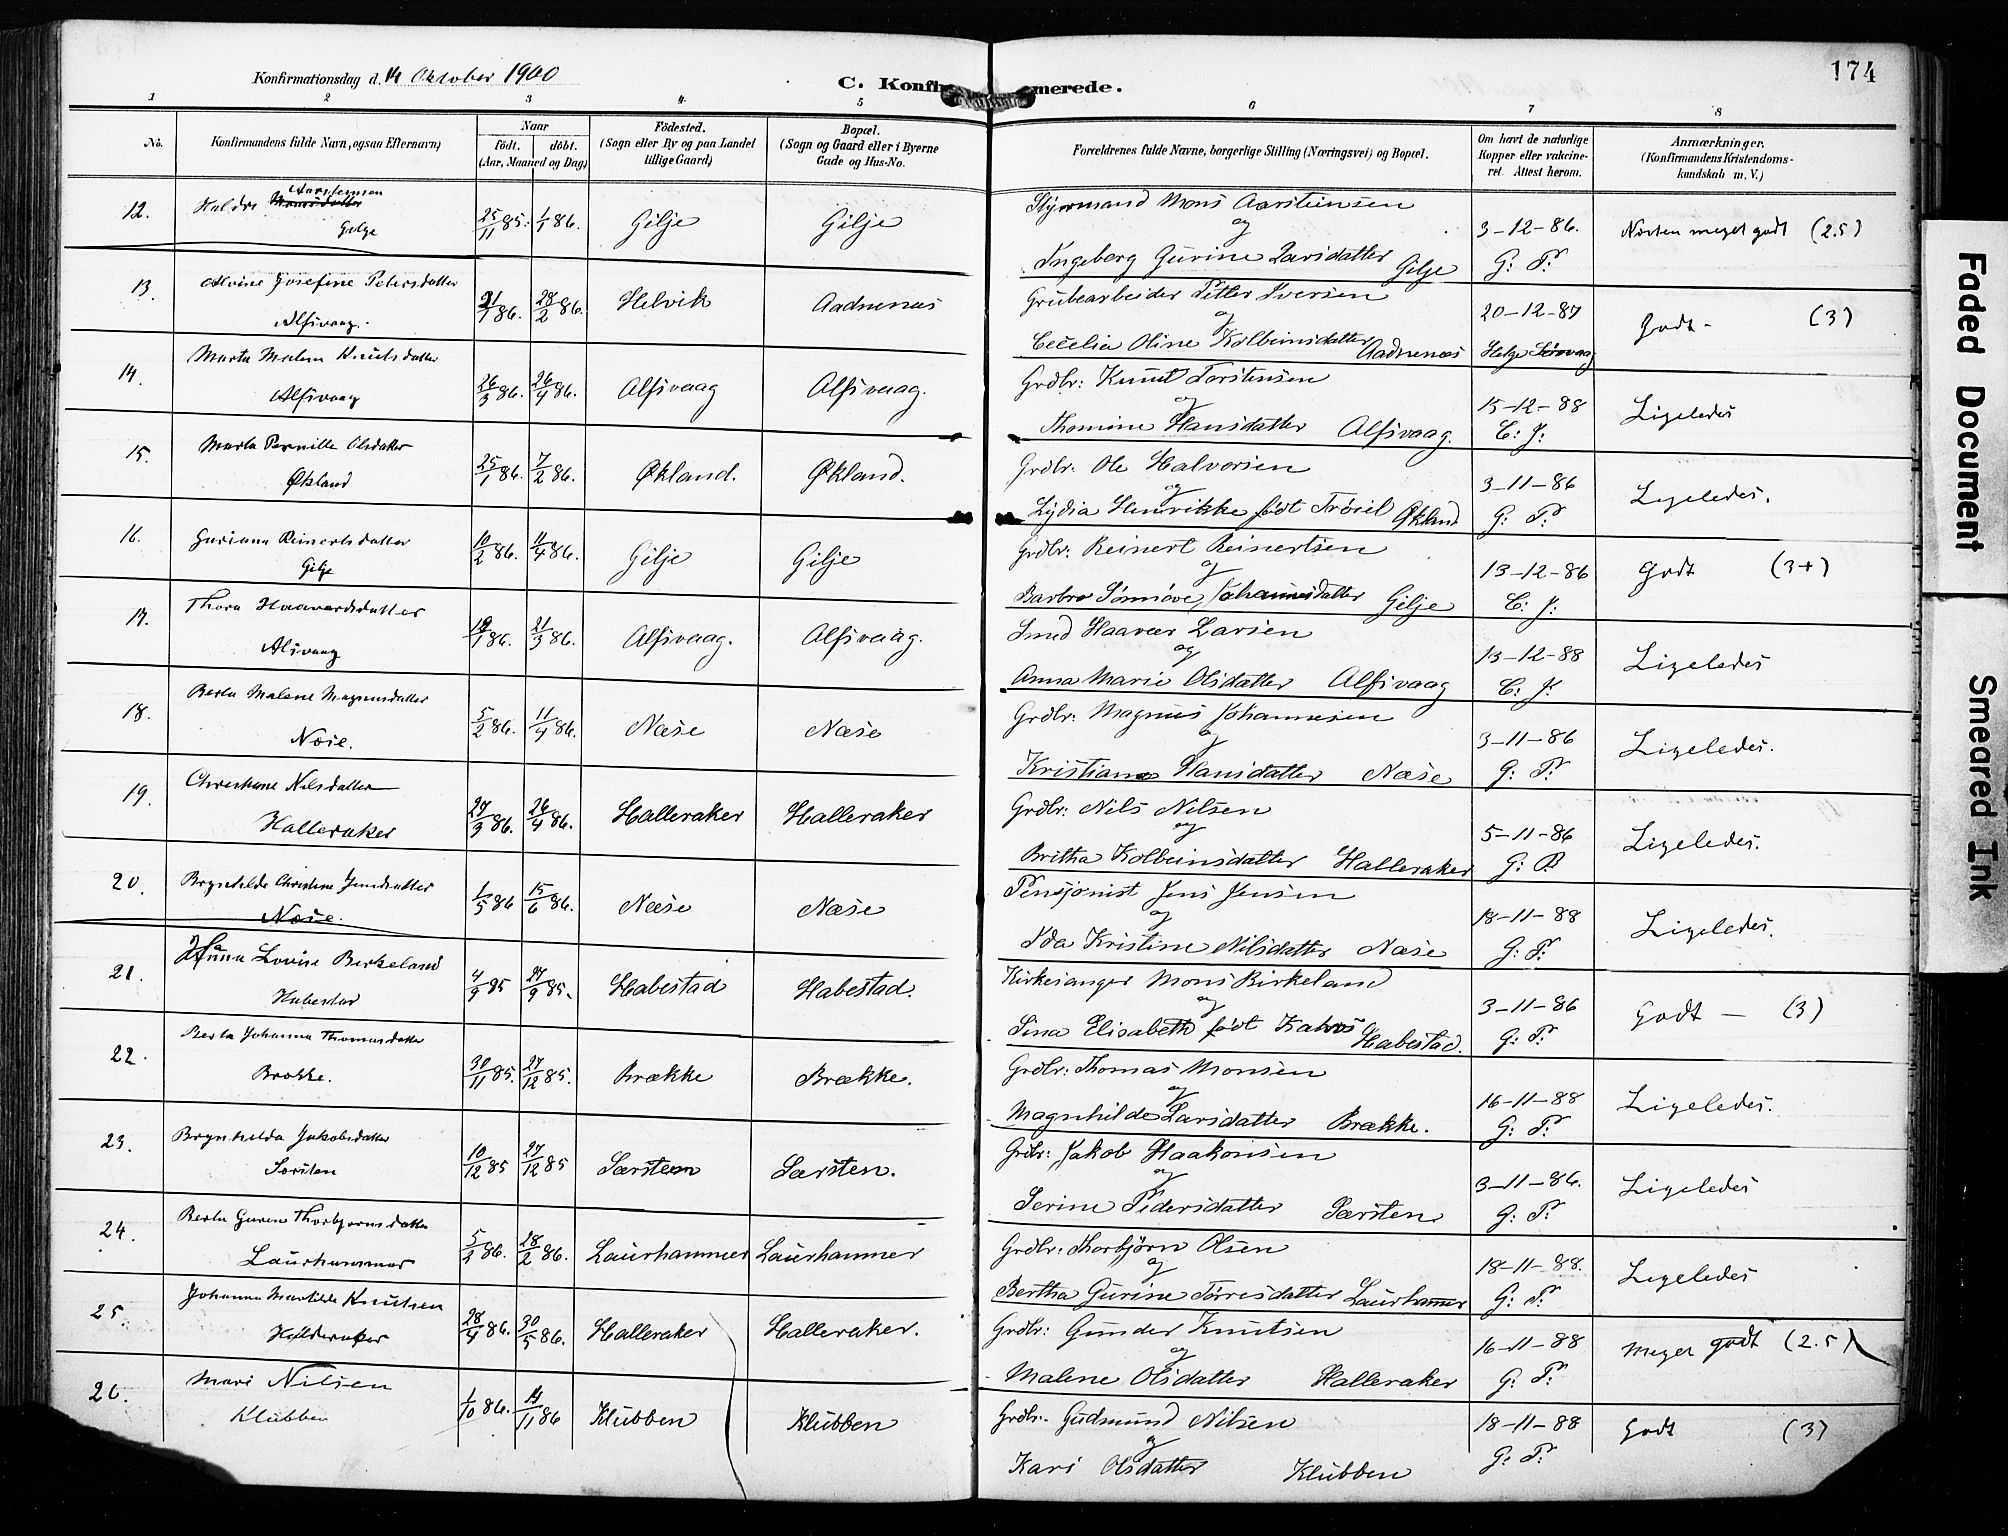 Konfirmationsdag d. 14 Oktober 1900
C. Konfirmerede.
174
1 2 3 4 5 6 7 8
No.
Konfirmandens fulde Navn, ogsaa Efternavn)
Naar
födt. döbt.
(Aar, Maaned og Dag)
Födested.
(Sogn eller By og paa Landet
tillige Gaard)
Bopæl.
(Sogn og Gaard eller i Byerne
Gade og Hus-No.
Forældrenes fulde Navne, borgerlige Stilling (Næringsvei) og Bopæl.
Om havt de naturlige
Kopper eller vakcine-
ret. Attest herom.
Anmærkninger.
(Konfirmandens Kristendoms-
kundskab m. V.)
Aarsteinson
12. Huldre Monsdatter Gilje 25/11 85. 1/1 86. Gilje Gilje Styrmand Mons Aarsteinsen
og
Ingeborg Gurine Larsdatter Gilje 3-12-86. G: P. Næsten meget godt (2.5)
13. Alvine Josefine Petersdatter
Alfsvaag. 21/1 86. 28/2 86. Helvik Aadnenæs Grubearbeider Petter Iversen
og
Cecelia Oline Kolbeinsdatter Aadnenæs 20-12-87 Helge Sørvaag Godt - (3)
14. Marta Malena Knutsdatter
Alfsvaag 26/3 86. 26/4 86. Alfsvaag Alfsvaag. Grdbr: Knut Torstensen
og
Thomine Hansdatter Alfsvaag. 15-12-88 C: J: Ligeledes
15. Marta Pernille Olsdatter
Økland 25/1 86. 7/2 86. Økland. Økland. Grdbr: Ole Halvorsen
og
Lydia Henrikke født Trøsil Økland 3-11-86 G: P: Ligeledes.
16. Guriana Reinertsdatter
Gilje 10/2 86. 11/4 86. Gilje Gilje Grdbr: Reinert Reinertsen
og
Barbro Sønnøve Johannesdatter Gilje 13-12-86 C: J: Godt (3+)
17. Thora Haavardsdatter
Alsvaag 19/1 86. 21/3 86. Alfsvaag. Alfsvaag. Smed Haavar Larsen
og
Anna Marie Olsdatter Alfsvaag 13-12-88 C: J: Ligeledes
18. Berta Malene Magnusdatter
Næse. 5/2 86. 11/4 86. Næse Næse Grdbr: Magnus Johannesen
og
Kristiane Hansdatter Næse 3-11-86 G: P: Ligeledes.
19. Christiane Nilsdatter
Halleraker 27/3 86. 26/4 86. Halleraker Halleraker Grdbr: Nils Nilsen
og
Britha Kolbeinsdatter Halleraker 5-11-86 G: P. Ligeledes.
20. Brynhilde Christine Jensdatter
Næse. 1/5 86 15/6 86. Næse Næse Pensjonist Jens Jensen
og
Ida Kristine Nilsdatter Næse 18-11-88 G: P: Ligeledes.
21. Hanna Lovise Berkeland
Habestad 4/9 85 27/9 85. Habestad Habestad. Kirkesanger Mons Birkeland
og
Sina Elisabeth født Kalvos Habestad. 3-11-86 G: P: Godt - (3)
22. Berta Johanna Thomasdatter
Brække. 30/11 85. 27/12 85. Brække Brække. Grdbr: Thomas Monsen
og
Magnhilde Larsdatter Brække. 16-11-88 G: P: Ligeledes.
23. Brynhilda Jakobsdatter
Sørsten 10/12 85 27/12 85 Særsten Særsten. Grdbr: Jakob Haakonsen
og
Serine Pedersdatter Særsten 3-11-86. G: P: Ligeledes
24. Berta Gurine Thorbjørnsdatter
Laurhammer 5/2 86. 28/2 86. Laurhammer Laurhammer Grdbr: Thorbjørn Olsen
og
Bertha Gurine Tørresdatter Laurhammer 18-11-88. G: P: Ligeledes
25. Johanna Mathilde Knutsen
Halleraker 28/4 86. 30/5 86. Halleraker Halleraker. Grdbr: Gunder Knutsen
og
Malene Olsdatter Halleraker 16-11-88 G: P: Meget godt (2.5)
26. Mari Nilsen
Klubben 1/10 86. 14/11 86 Klubben Klubben Grdbr. Gudmund Nilsen
og
Kari Olsdatter Klubben 18-11-88 G: P: Godt (3)
Faded Document
Smeared Ink